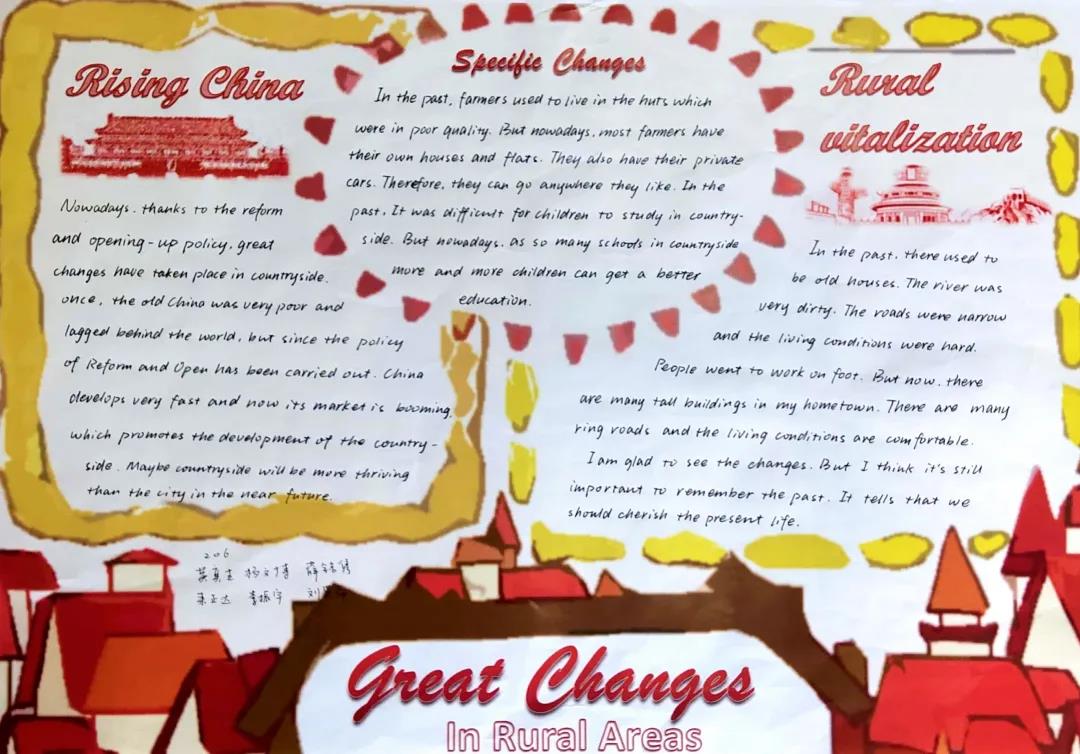 Rising China
Nowadays, thanks to the reform
and opening-up policy, great
changes have taken place in countryside.
once, the old China was very poor and
lagged behind the world, but since the policy
of Reform and Open has been carried out. China
develops very fast and now its market is booming,
which promotes the development of the country-
side. Maybe countryside will be more thriving
than the city in the near future.
Specific Changes
In the past, farmers used to live in the huts which
were in poor quality. But nowadays, most farmers have
their own houses and flats. They also have their private
cars. Therefore, they can go anywhere they like. In the
past, It was difficult for children to study in country-
side. But nowadays, as so many schools in countryside
more and more children can get a better
education.
Rural
vitalization
In the past, there used to
be old houses. The river was
very dirty. The roads were narrow
and the living conditions were hard.
People went to work on foot. But now, there
are many tall buildings in my hometown. There are many
ring roads and the living conditions are comfortable.
I am glad to see the changes. But I think it's still
important to remember the past. It tells that we
should cherish the present life.
206
李振宇
Great Changes
In Rural Areas